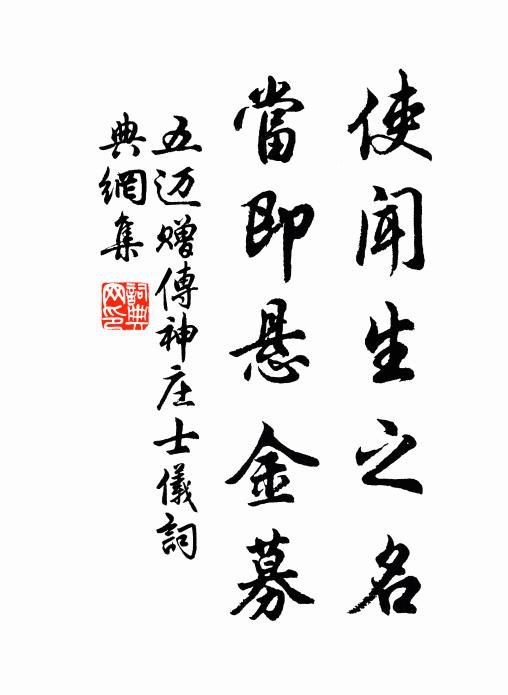 使闻生之名
當即悬金募
五迈赠傳神庄士儀詞
典網集
詞典网印